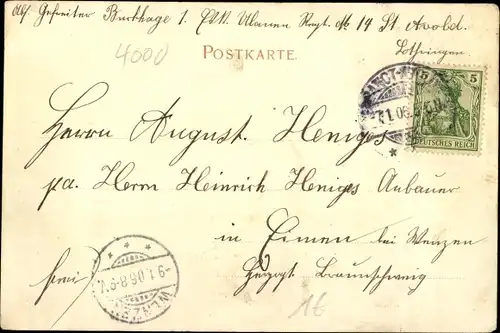 Abs. Gefreiter Burkhage 1. Esk. Ulanen Regt. No 14 St. Avold.
Lothringen
4000
POSTKARTE.
SANCT-AVOLD
7.1.06.
5 5
DEUTSCHES REICH
Herrn August Heniges
p.a. Herrn Heinrich Heniges Anbauer
in Eimen bei Wenzen
frei
Herzogt. Braunschweig
WENZEN
9.1.06.8-9V.
1E